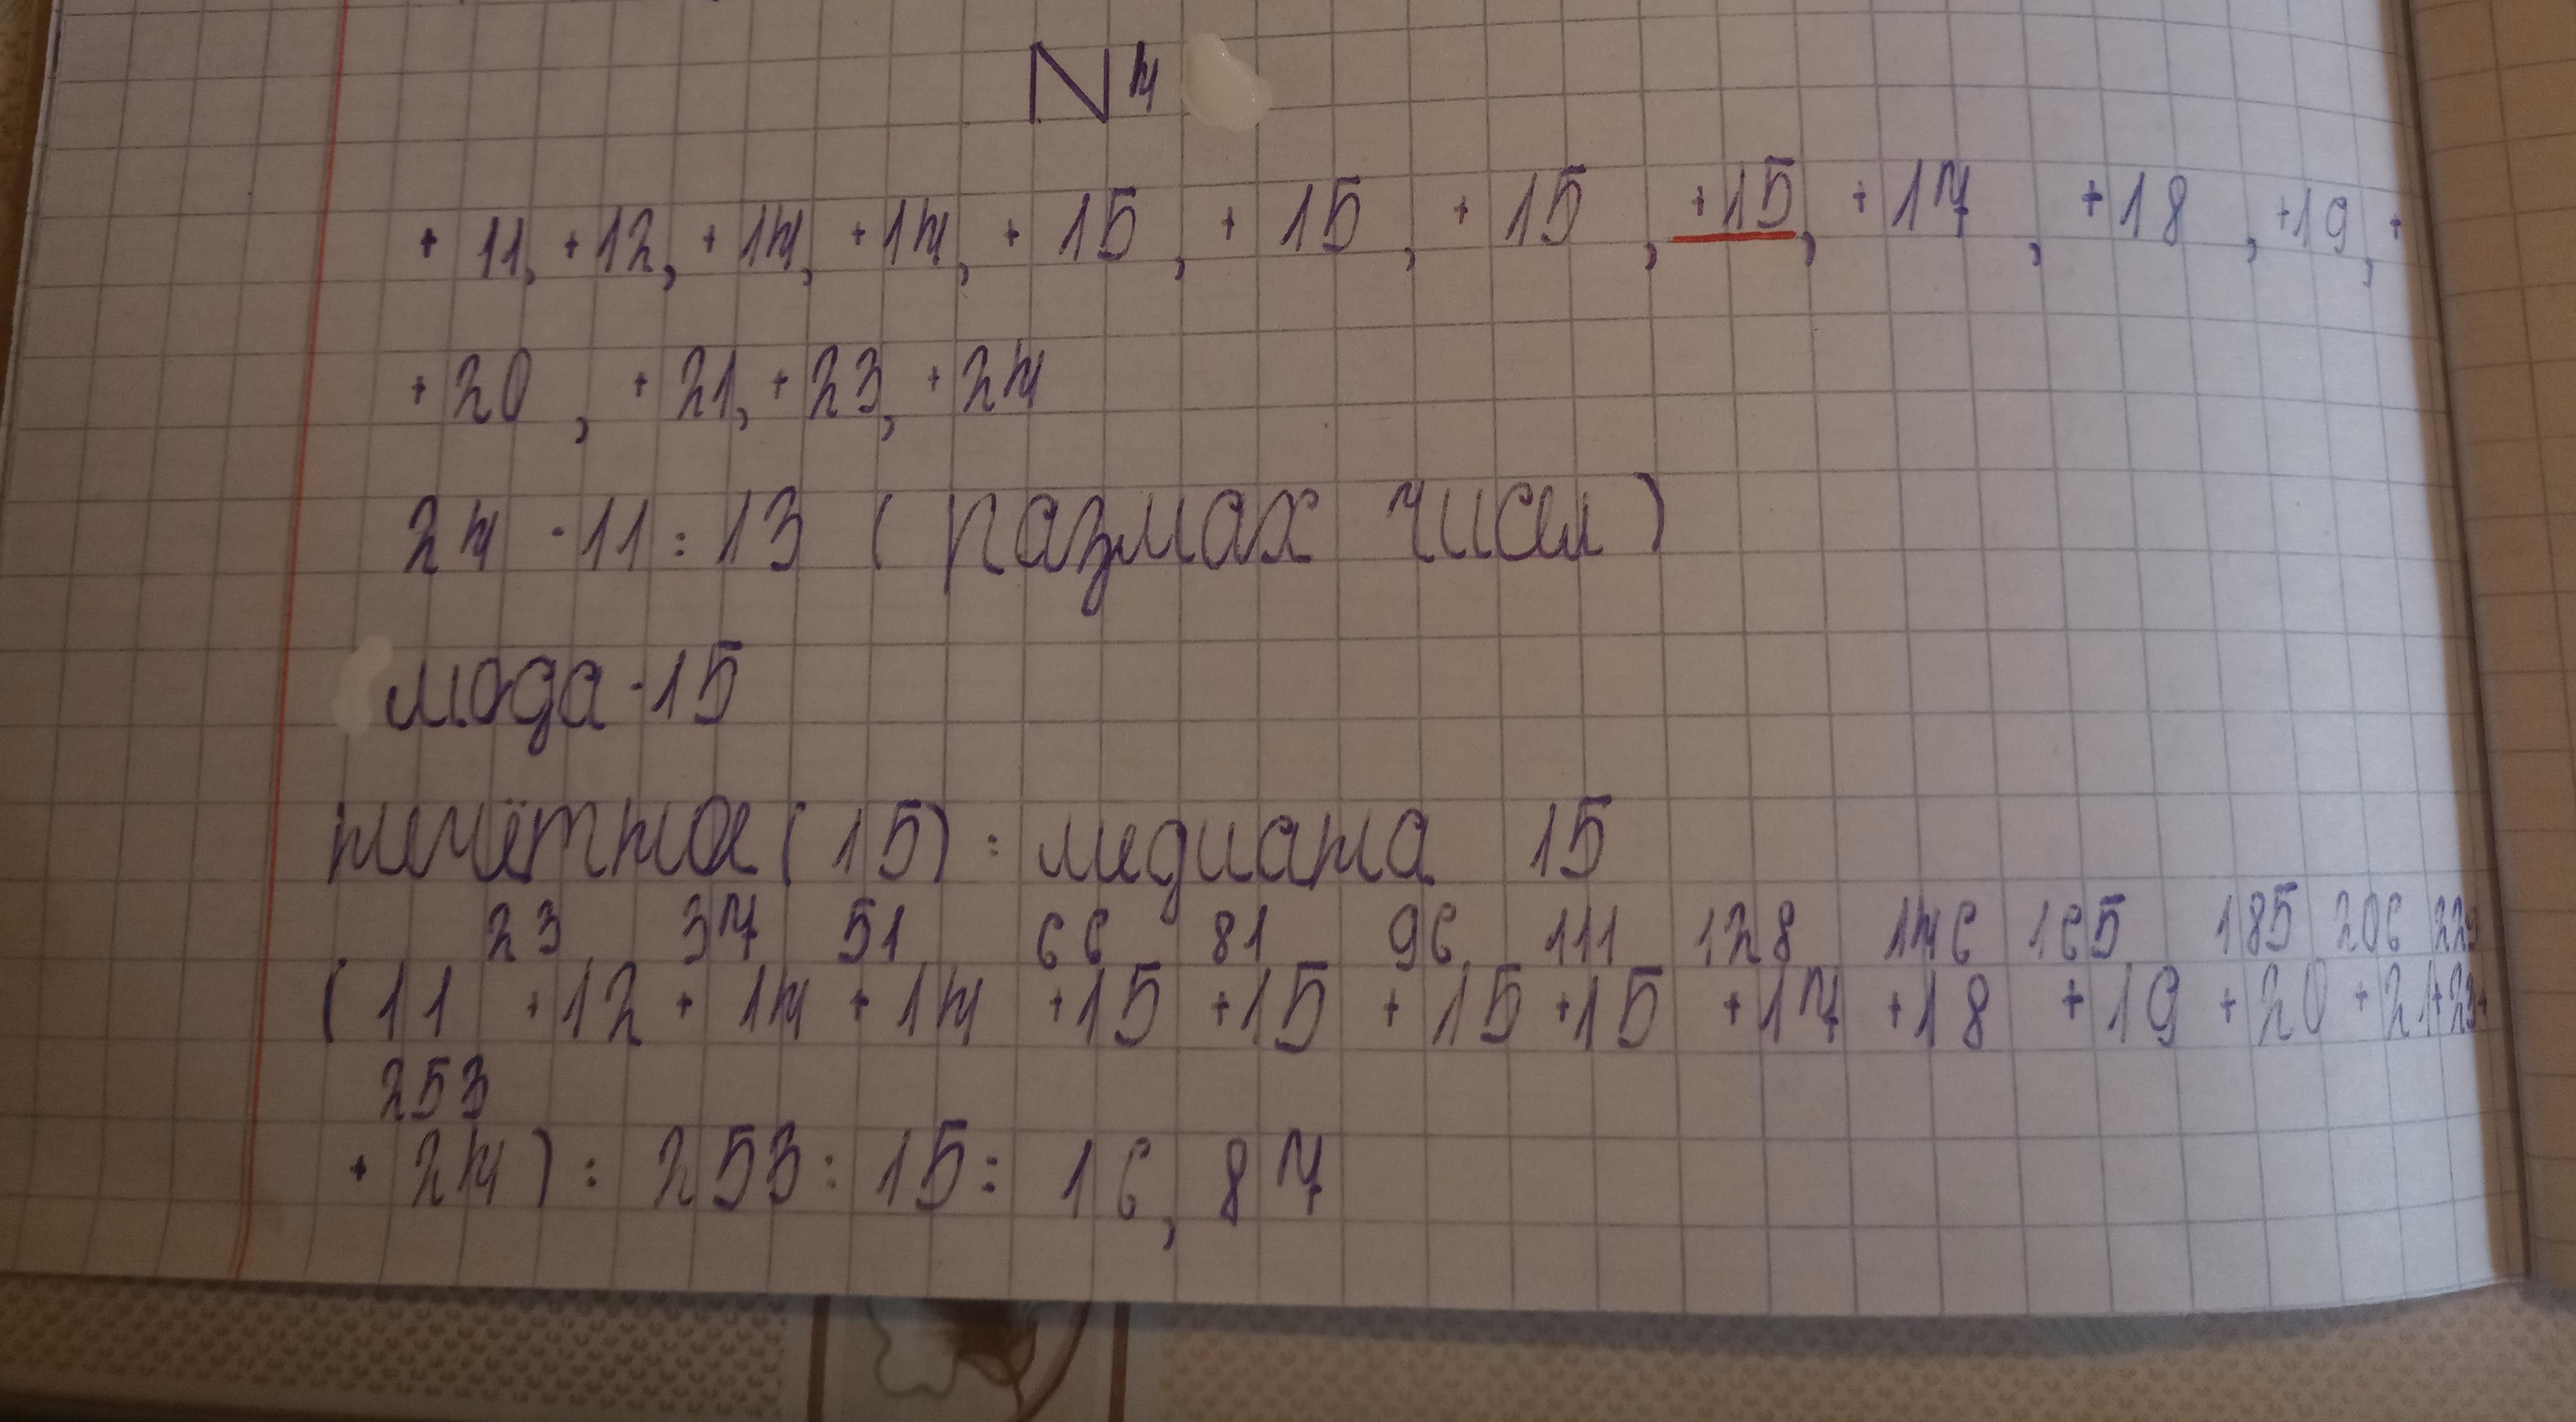 N4
+11, +12, +14, +14, +15, +15, +15, +15, +17, +18, +19, +
+20, +21, +23, +24
24 - 11 = 13 (размах чисел)
мода - 15
нечётное (15) = медиана 15
23 37 51 66 81 96 111 128 146 165 185 206 229
(11 + 12 + 14 + 14 + 15 + 15 + 15 + 15 + 17 + 18 + 19 + 20 + 21 + 23 +
253
+ 24) = 253 : 15 = 16,87